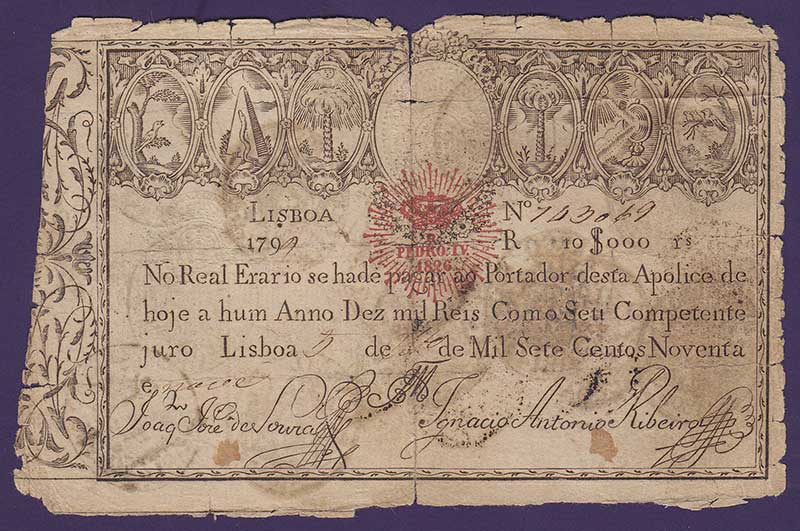 LISBOA Nº 143069
1799 R 10 $000 rs
PEDRO. IV.
No Real Erario se hade pagar ao Portador desta Apolice de
hoje a hum Anno Dez mil Reis Com o Seu Competente
juro Lisboa 3 de de Mil Sete Centos Noventa
e nove
Joaq.m Jozé de Souza Ignacio Antonio Ribeiro